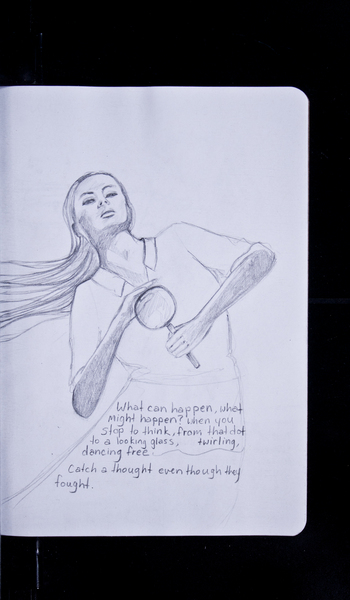 What can happen, what
might happen? when you
stop to think, from that dot
to a looking glass, twirling,
dancing free.
Catch a thought even though they
fought.